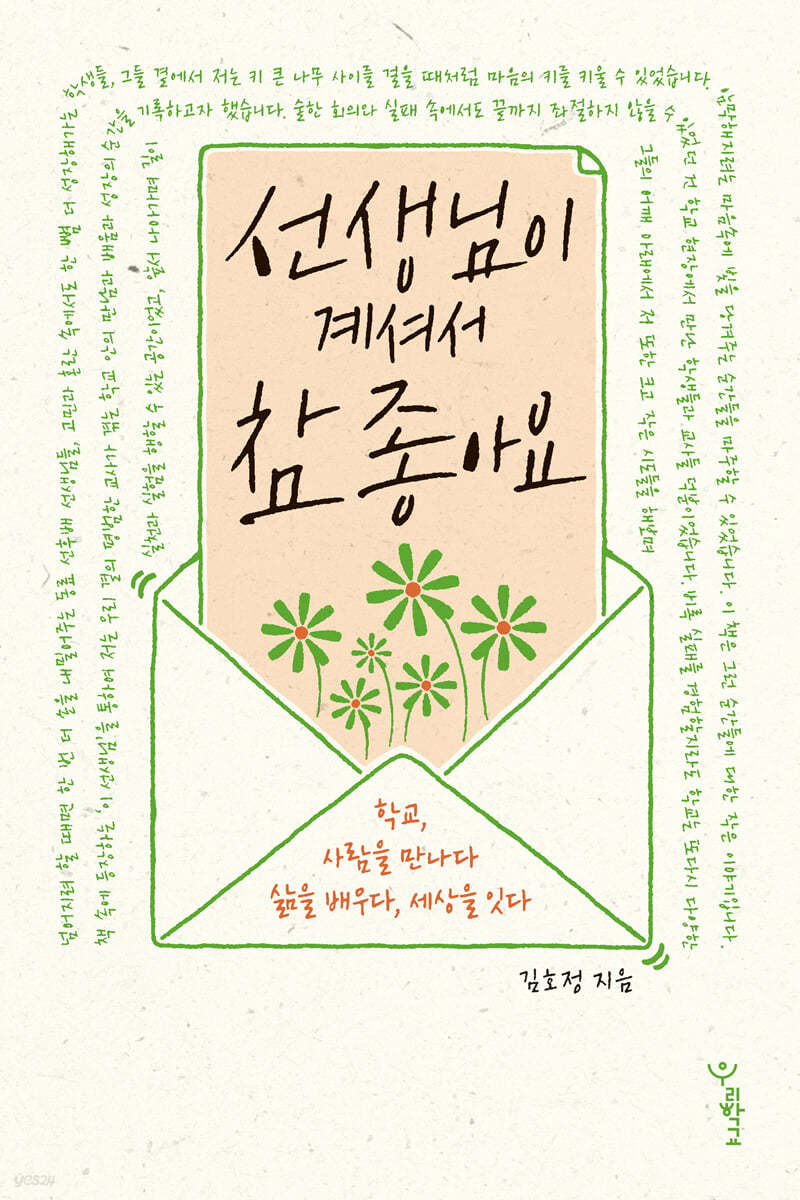 넘어지려 할 때면 한 번 더 손을 내밀어주는 동료 선후배 선생님들, 고민과 혼란 속에서도 한 뼘 더 성장해가는 학생들, 그들 곁에서 저는 키 큰 나무 사이를 걸을 때처럼 마음의 키를 키울 수 있었습니다. 마음속에 빛을 당겨주는 순간들을 마주할 수 있었습니다. 이 책은 그런 순간들에 대한 작은 이야기입니다.
책 속에 등장하는 이 '선생님'을 통하여 저는 우리 곁의 평범한 교사가 겪는 학교 안의 만남과 배움과 성장의 순간들을 기록하고자 했습니다. 숱한 회의와 실패 속에서도 끝까지 좌절하지 않을 수 있었던 건 학교 현장에서 만난 학생들과 교사들 덕분이었습니다. 비록 실패를 경험할지라도 학교는 또다시 다양한
실천과 실험을 행할 수 있는 공간이었고, 앞서 나아가며 길이
그들의 어깨 아래에서 저 또한 크고 작은 시도들을 해보며
선생님이
계셔서
참 좋아요
학교,
사람을 만나다
삶을 배우다, 세상을 잇다
김호정 지음
우리학교
yes24